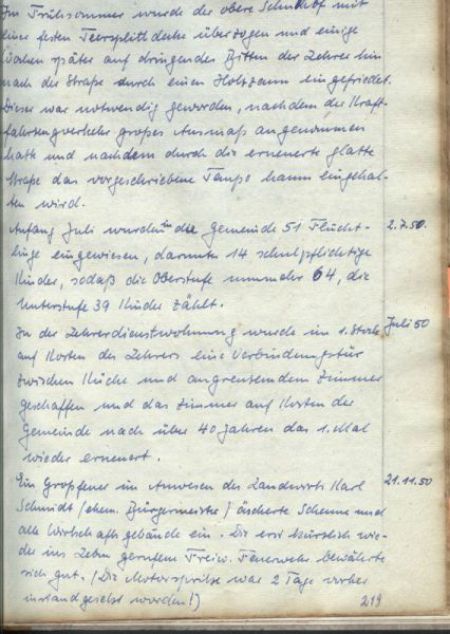 Im Frühsommer wurde der obere Schulhof mit
einer festen Teersplittdecke überzogen und einige
Wochen später auf dringendes Bitten der Lehrer hin
nach der Straße durch einen Holzzaun eingefriedet.
Dieser war notwendig geworden, nachdem der Kraft-
fahrzeugverkehr großes Ausmaß angenommen
hatte und nachdem durch die erneuerte glatte
Straße das vorgeschriebene Tempo kaum eingehal-
ten wird.
Anfang Juli wurden in die Gemeinde 51 Flücht- 2.7.50.
linge eingewiesen, darunter 14 schulpflichtige
Kinder, sodaß die Oberstufe nunmehr 64, die
Unterstufe 39 Kinder zählt.
In der Lehrerdienstwohnung wurde im 1. Stock Juli 50
auf Kosten des Lehrers eine Verbindungstür
zwischen Küche und angrenzendem Zimmer
geschaffen und das Zimmer auf Kosten der
Gemeinde nach über 40 Jahren das 1. Mal
wieder erneuert.
Ein Großfeuer im Anwesen des Landwirts Karl 21.11.50
Schmidt (ehem. Bürgermeister) äscherte Scheune und
alle Wirtschaftsgebäude ein. Die erst kürzlich wie-
der ins Leben gerufene Freiw. Feuerwehr bewährte
sich gut. (Die Motorspritze war 2 Tage vorher
instandgesetzt worden!)
219